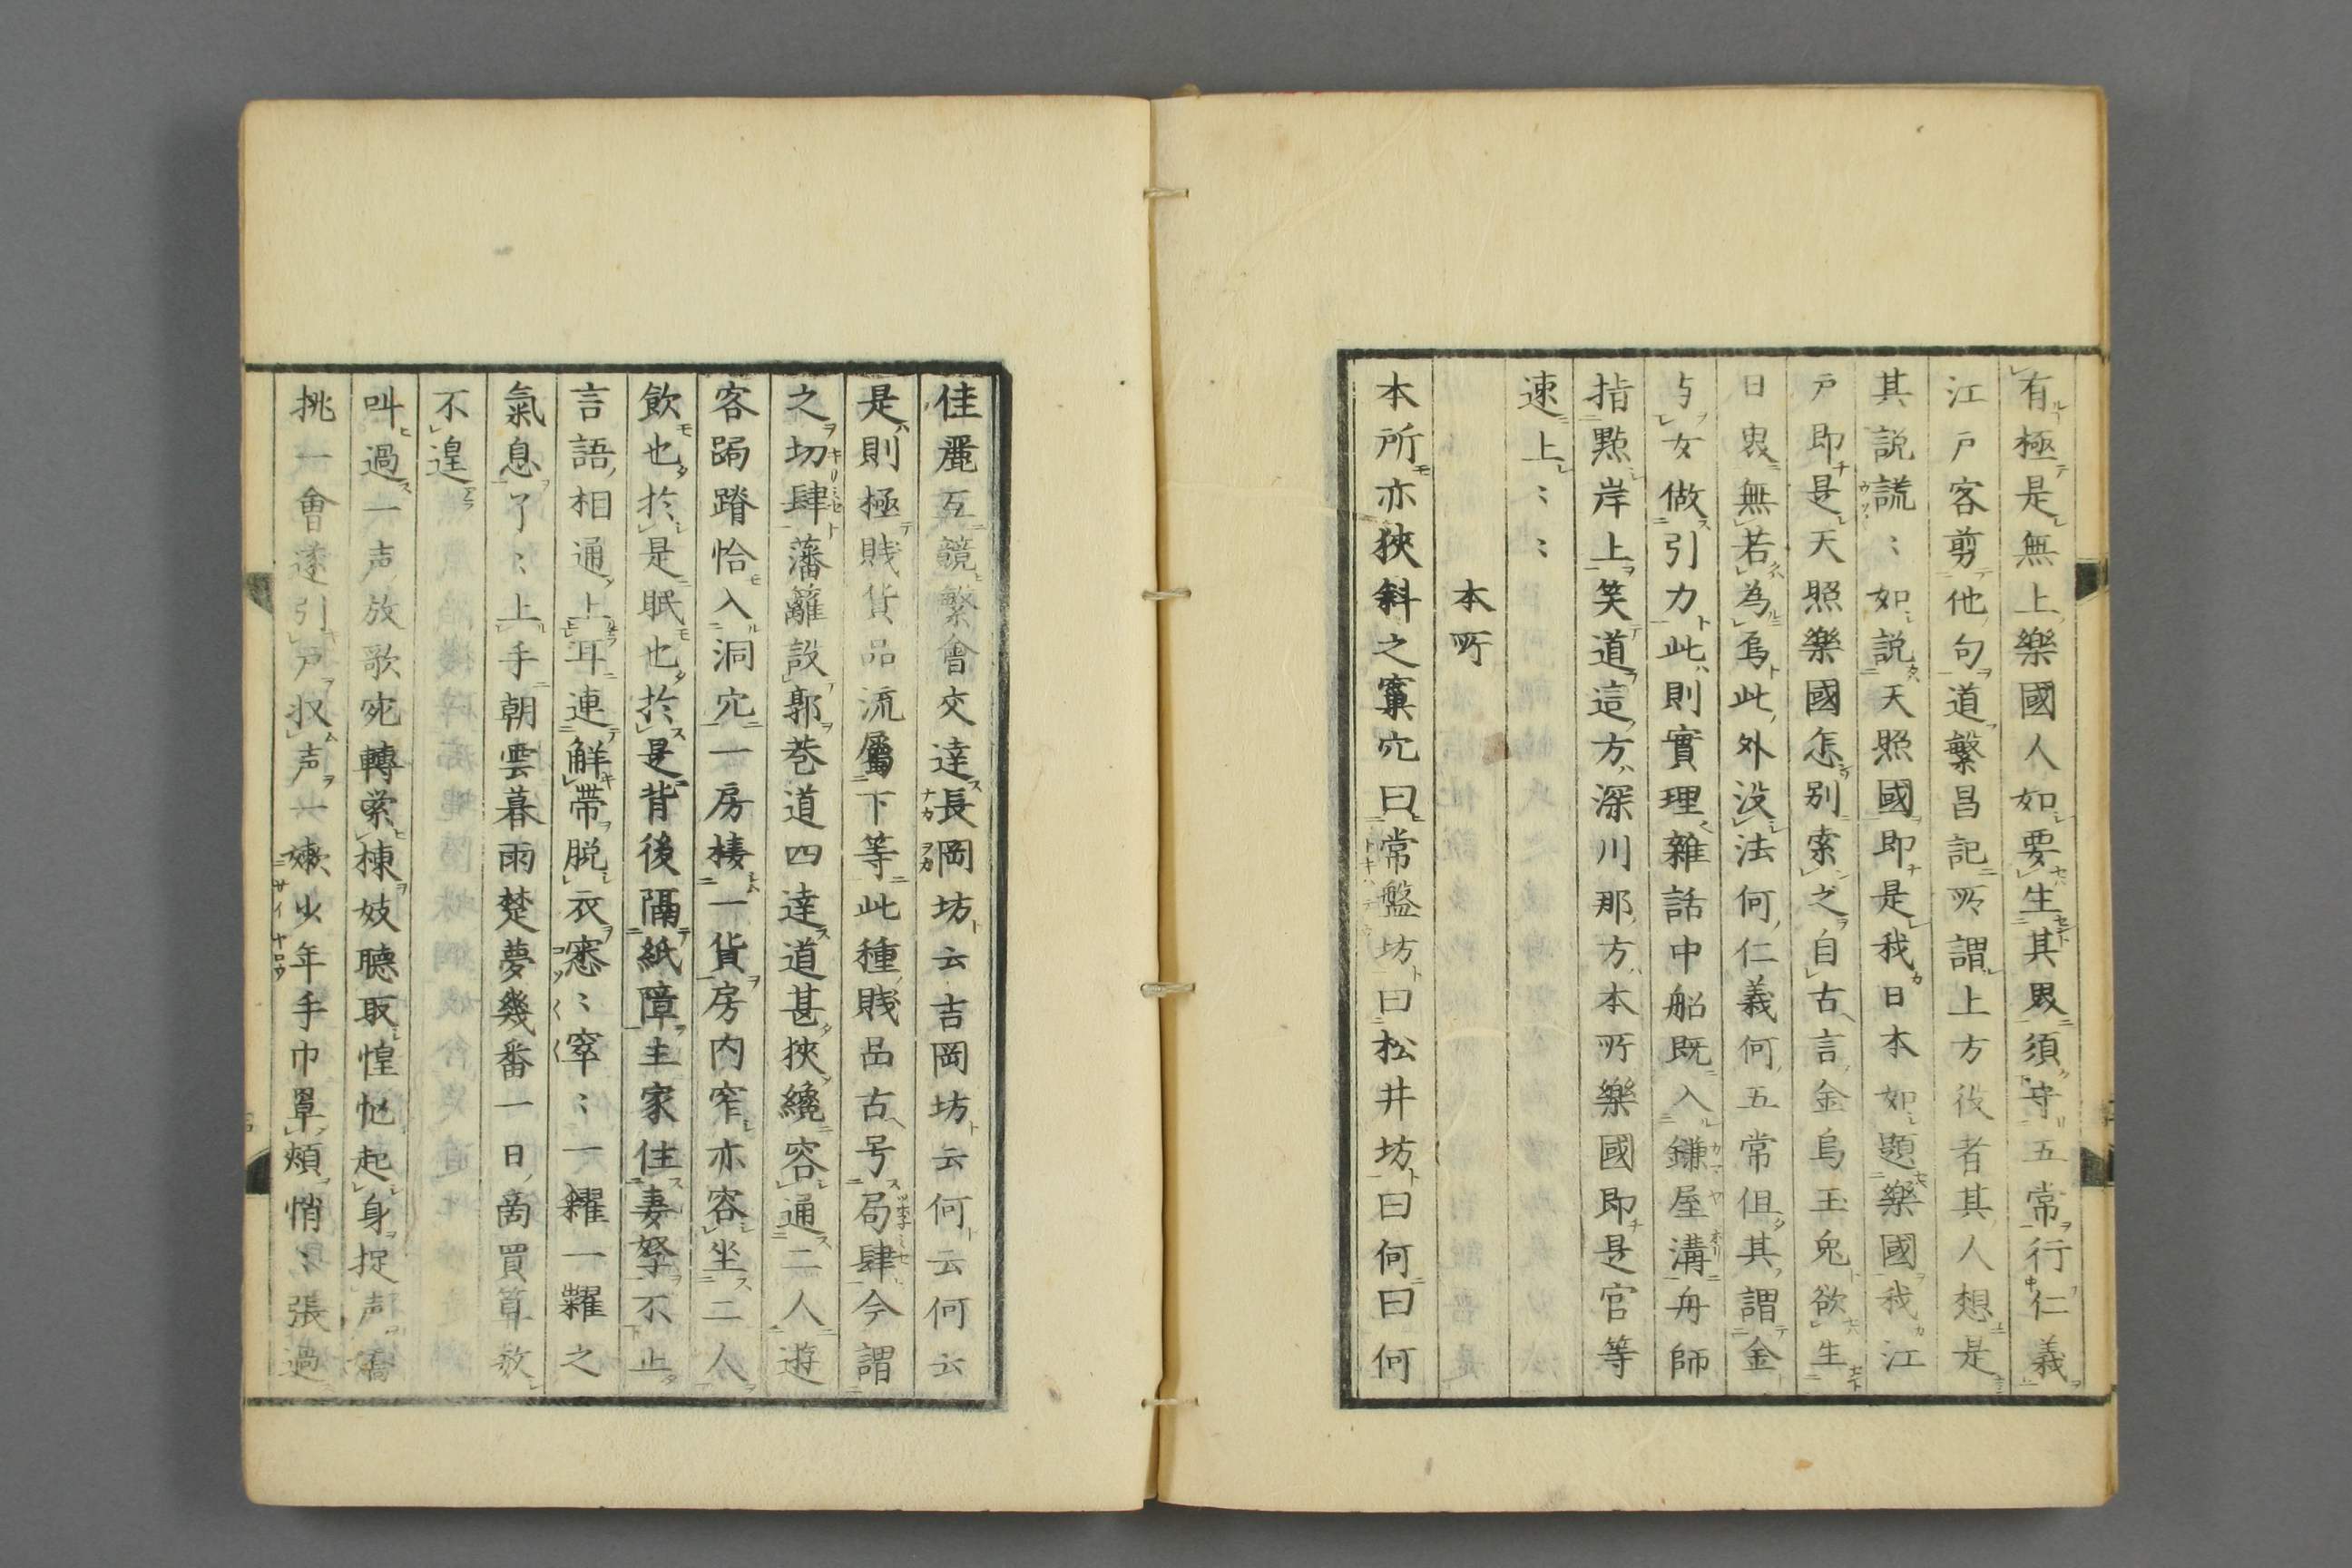 有極是無上樂國人如要生其思須守五常行仁義
江戸客剪他句道繁昌記所謂上方役者其人想是
其説謊〻如説天照國即是我日本如題樂國我江
戸即是天照樂國怎別索之自古言金烏玉兎欲生
日思無若為烏此外没法何仁義何五常但其謂金
与女做引力此則實理雜話中船既入鎌屋溝舟師
指點岸上笑道這方深川那方本所樂國即是官等
速上〻〻
本所
本所亦狹斜之窠穴曰常盤坊曰松井坊曰何曰何
佳麗互競繁會交達長岡坊云吉岡坊云何云何云
是則極賤貨品流屬下等此種賤品古号局肆今謂
之切肆藩籬設郭巷道四達道甚狹纔容通二人遊
客跼蹐恰入洞穴一房棲一貨房内窄亦容坐二人
飲也於是眠也於是背後隔紙障主家住妻孥不止
言語相通上耳連解帶脱衣窸〻窣〻一糴一糶之
氣息了〻上手朝雲暮雨楚夢幾番一日商買算放
不遑
叫過一声放歌宛轉索揀妓聽取惶怱起身捉声
挑一會遂引戸収声一嫩少年手巾罩頬悄〻張過